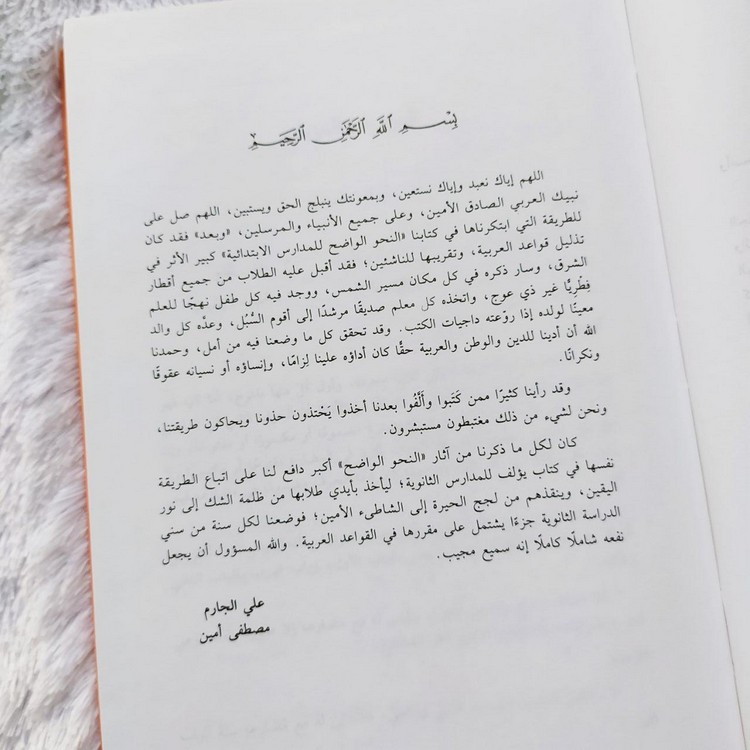 بِسْمِ ٱللَّهِ ٱلرَّحْمَٰنِ ٱلرَّحِيمِ
اللهم إياك نعبد وإياك نستعين، وبمعونتك ينبلج الحق ويستبين، اللهم صل على
نبيك العربي الصادق الأمين، وعلى جميع الأنبياء والمرسلين، «وبعد» فقد كان
للطريقة التي ابتكرناها في كتابنا «النحو الواضح للمدارس الابتدائية» كبير الأثر في
تذليل قواعد العربية، وتقريبها للناشئين؛ فقد أقبل عليه الطلاب من جميع أقطار
الشرق، وسار ذكره في كل مكان مسير الشمس، ووجد فيه كل طفل نهجًا للعلم
فِطْرِيًّا غير ذي عوج، واتخذه كل معلم صديقًا مرشدًا إلى أقوم السُّبُل، وعدَّه كل والد
معينًا لولده إذا روّعته داجيات الكتب. وقد تحقق كل ما وضعنا فيه من أمل، وحمدنا
الله أن أدينا للدين والوطن والعربية حقًّا كان أداؤه علينا لِزامًا، وإنساؤه أو نسيانه عقوقًا
ونكرانًا.
وقد رأينا كثيرًا ممن كَتَبوا وأَلَّفُوا بعدنا أخذوا يَحْتذون حذونا ويحاكون طريقتنا،
ونحن لشيء من ذلك مغتبطون مستبشرون.
كان لكل ما ذكرنا من آثار «النحو الواضح» أكبر دافع لنا على اتباع الطريقة
نفسها في كتاب يؤلف للمدارس الثانوية؛ ليأخذ بأيدي طلابها من ظلمة الشك إلى نور
اليقين، وينقذهم من لجج الحيرة إلى الشاطىء الأمين؛ فوضعنا لكل سنة من سني
الدراسة الثانوية جزءًا يشتمل على مقررها في القواعد العربية. والله المسؤول أن يجعل
نفعه شاملًا كاملًا إنه سميع مجيب.
علي الجارم
مصطفى أمين